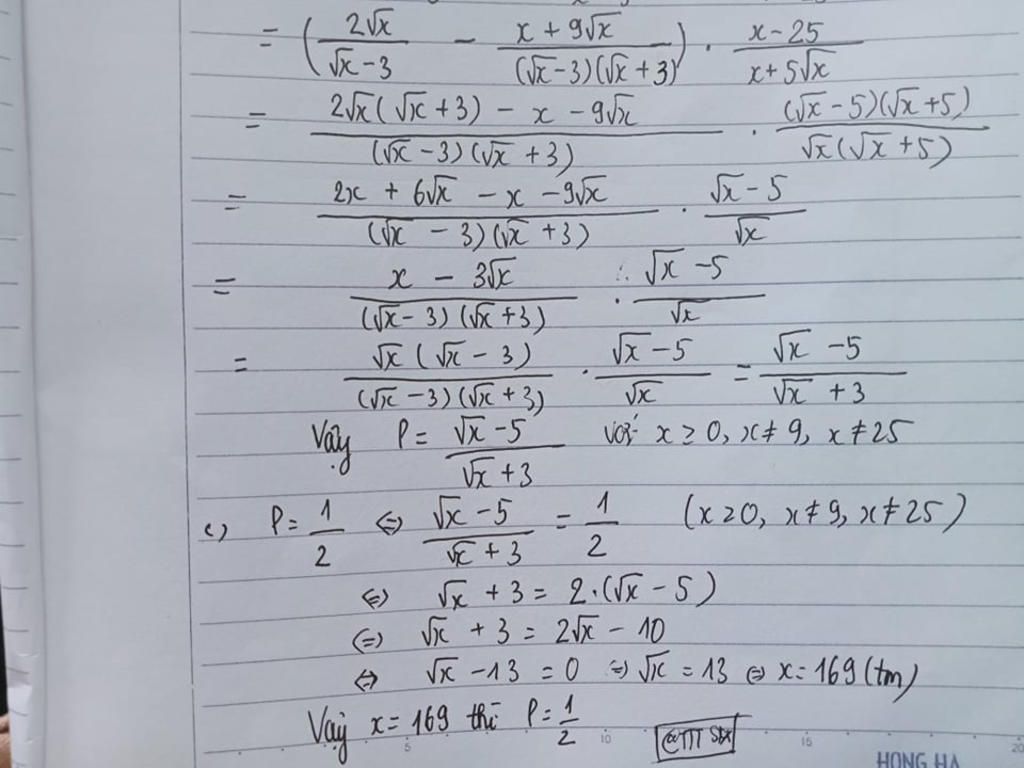 = (2√x/(√x-3) - (x+9√x)/((√x-3)(√x+3))) · (x-25)/(x+5√x)
= (2√x(√x+3) - x - 9√x)/((√x-3)(√x+3)) · ((√x-5)(√x+5))/(√x(√x+5))
= (2x + 6√x - x - 9√x)/((√x-3)(√x+3)) · (√x-5)/√x
= (x - 3√x)/((√x-3)(√x+3)) · (√x-5)/√x
= (√x(√x-3))/((√x-3)(√x+3)) · (√x-5)/√x = (√x-5)/(√x+3)
Vậy P = (√x-5)/(√x+3) với x ≥ 0, x ≠ 9, x ≠ 25
c) P = 1/2 ⇔ (√x-5)/(√x+3) = 1/2 (x ≥ 0, x ≠ 9, x ≠ 25)
⇔ √x + 3 = 2·(√x - 5)
⇔ √x + 3 = 2√x - 10
⇔ √x - 13 = 0 ⇔ √x = 13 ⇔ x = 169 (tm)
Vậy x = 169 thì P = 1/2
5 10 15 20
HONG HA